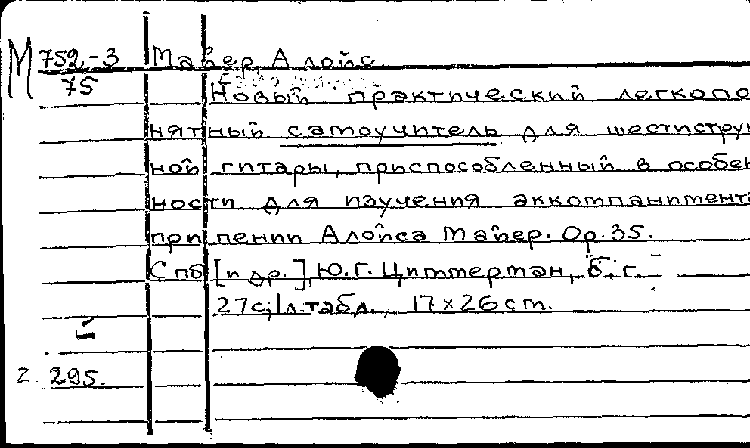 М 752-3 Майер, Алойс.
75
Новый практический легкопо
нятный самоучитель для шестиструн
ной гитары, приспособленный в особен
ности для изучения аккомпанимента
при пении Алойса Майер. Op. 35.
Спб [и др.], Ю.Г. Циммерман, б.г.
27с., 1 л. табл. 17×26 cm.
2. 295.